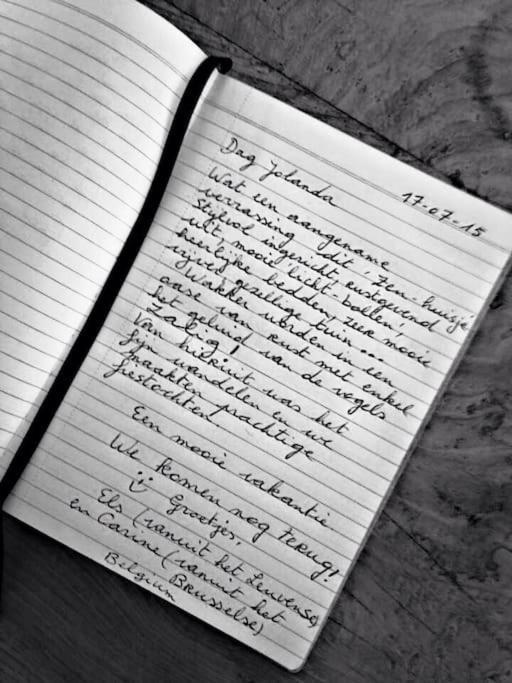 Dag Yolanda
17-07-15
Wat een aangename
verrassing dit 'zen-huisje'
stijlvol ingericht, rustgevend
wit, mooie licht-bollen,
heerlijke bedden, zeer mooie
vijver, gezellige tuin...
Wakker worden in een
oase van rust met enkel
het geluid van de vogels
Zalig!
Van hieruit was het
fijn wandelen en we
maakten prachtige
fietstochten.
Een mooie vakantie
We komen nog terug!
Groetjes.
Els (vanuit het Leuvense)
en Carine (vanuit het
Brusselse)
Belgium